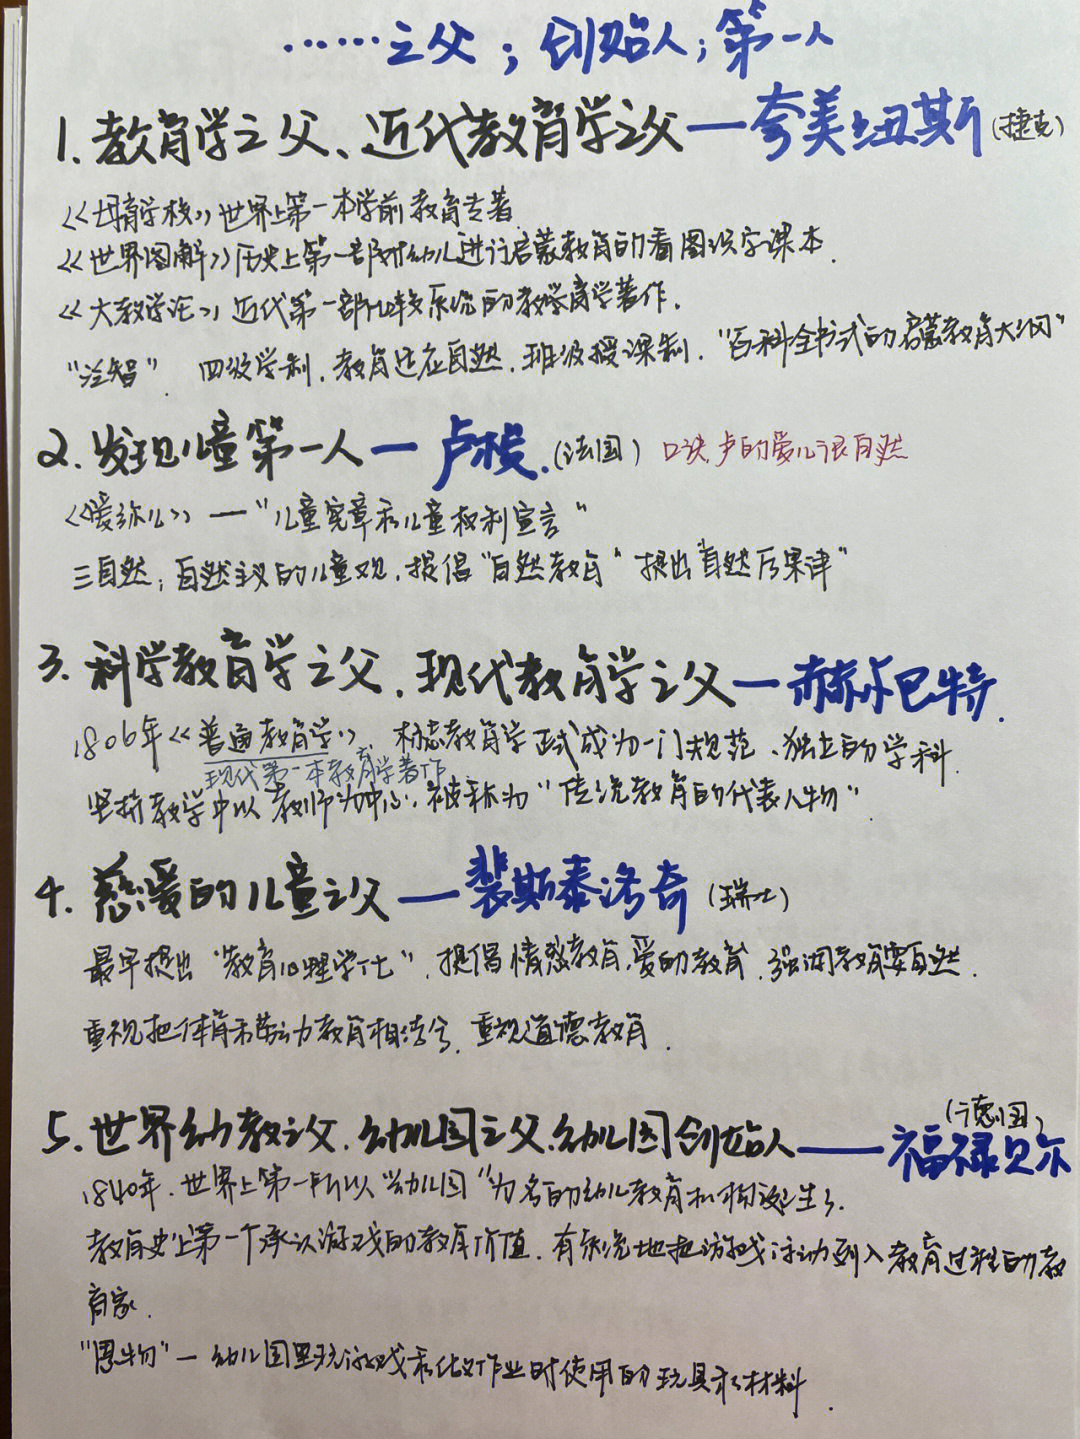 ……之父；创始人；第一人
1.教育学之父、近代教育学之父—夸美纽斯(捷克)
《母育学校》世界上第一本学前教育专著
《世界图解》历史上第一部对幼儿进行启蒙教育的看图识字课本.
《大教学论》近代第一部比较系统的教学育学著作.
"泛智". 四级学制,教育适应自然,班级授课制."百科全书式的启蒙教育大纲"
2.发现儿童第一人—卢梭.(法国) 口诀.卢的爱儿很自然
《爱弥儿》—"儿童宪章和儿童权利宣言"
三自然;自然主义的儿童观,提倡"自然教育"提出"自然后果律"
3.科学教育学之父.现代教育学之父—赫尔巴特.
1806年《普通教育学》,标志教育学正式成为一门规范、独立的学科.
现代第一本教育学著作
坚持教学中以教师为中心,被称为"传统教育的代表人物"
4.慈爱的儿童之父—裴斯泰洛奇(瑞士)
最早提出"教育心理学化",提倡情感教育,爱的教育,强调教育要自然.
重视把体育和劳动教育相结合.重视道德教育.
5.世界幼教之父.幼儿园之父.幼儿园创始人——福禄贝尔(德国)
1840年.世界上第一所以"幼儿园"为名的幼儿教育机构诞生了.
教育史上第一个承认游戏的教育价值.有系统地把游戏活动列入教育过程的教
育家.
"恩物"—幼儿园里玩游戏和做作业时使用的玩具和材料.